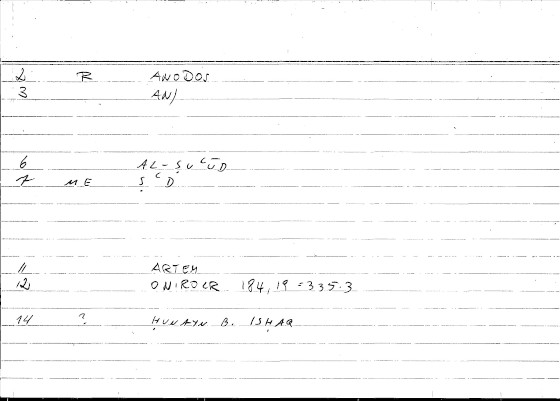 2 R ANODOS
3 AN/
6 AL-ṢUʿŪD
7 ME ṢʿD
11 ARTEM
12 ONIROCR 184,19 = 335.3
14 ? ḤUNAYN B. ISḤAQ